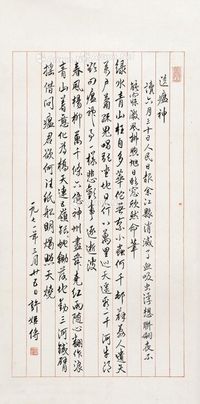 送瘟神
讀六月三十日人民日報余江縣消滅了血吸虫浮想聯翩夜不
能寐微風拂煦旭日臨窗欣然命筆
綠水青山枉自多華佗無奈小蟲何千村薜荔人遺矢
萬戶蕭疏鬼唱歌坐地日行八萬里巡天遙看一千河牛郎
欲問瘟神事一樣悲歡逐逝波
春風楊柳萬千條六億神州盡舜堯紅雨隨心翻作浪
青山着意化為橋天連五嶺銀鋤落地動三河鐵臂
搖借問瘟君欲何往紙船明燭照天燒
年三月廿五日許姬傳